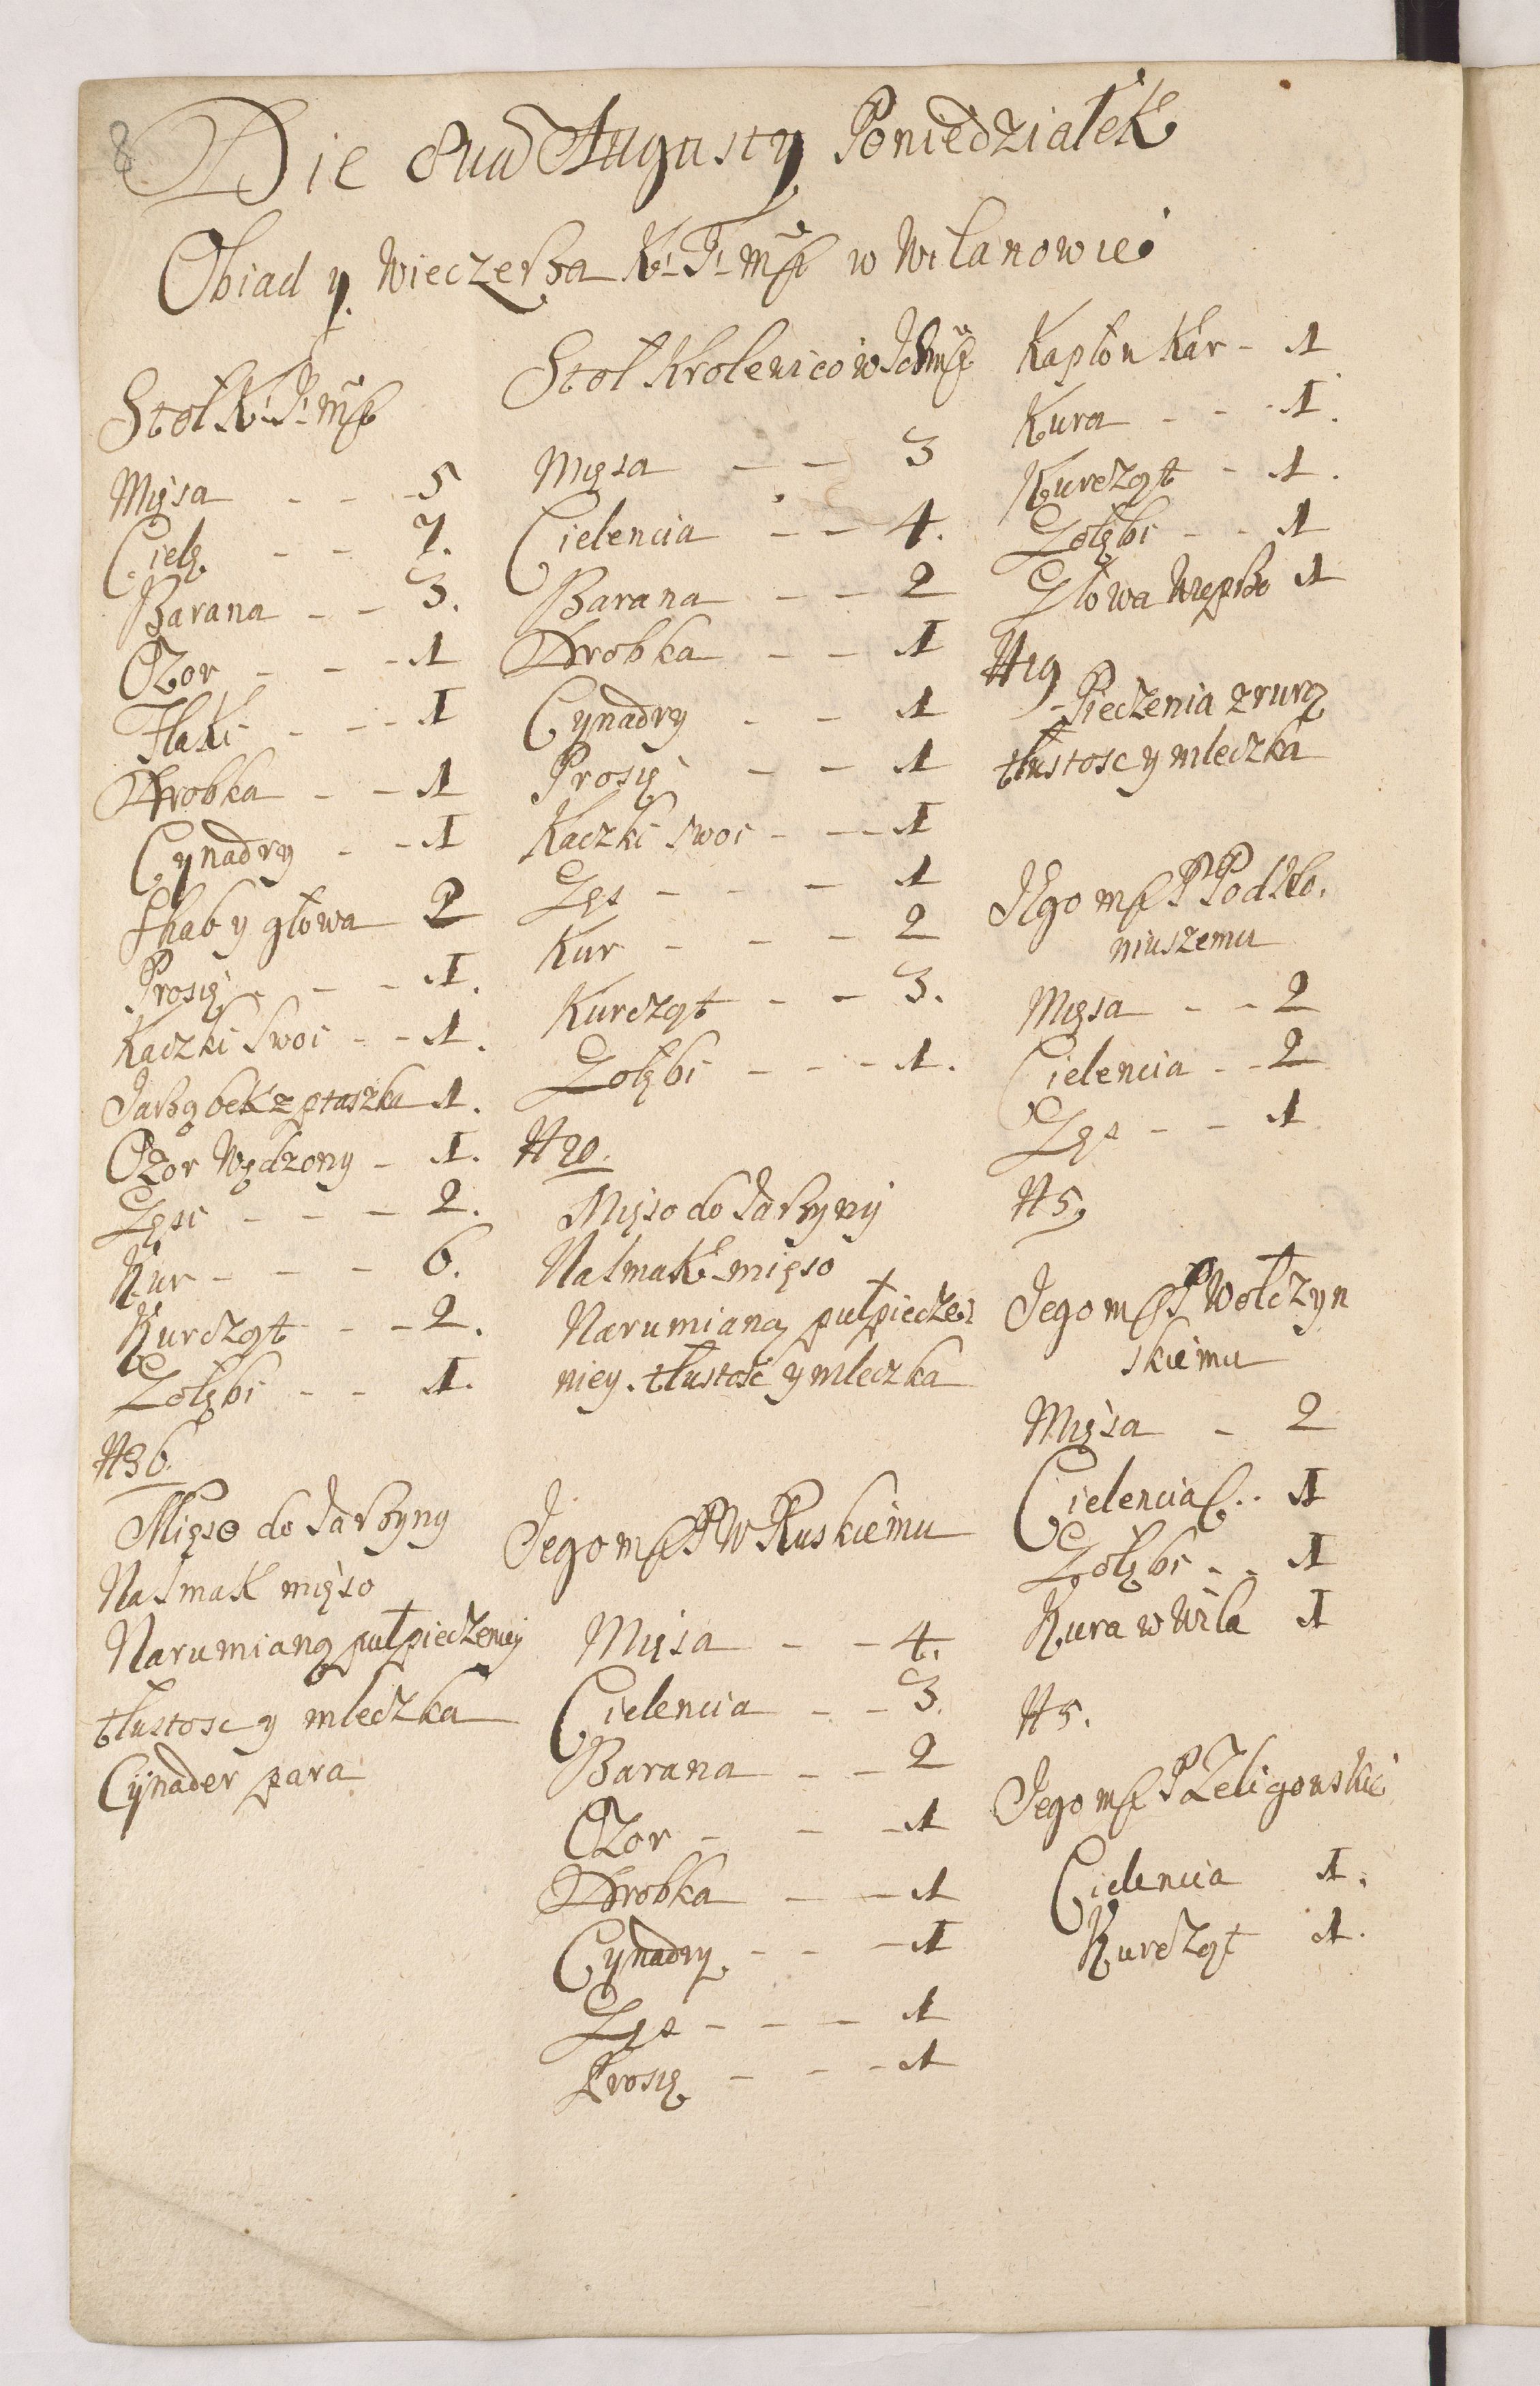 8
Die 8va Augusty Poniedziałek
Obiad y Wieczerza K. J. Msci w Wilanowie
Stoł K. J. Msci
Mięsa - - - 5
Cielę - - 7.
Barana - - 3.
Ozor - - - 1
Flaki - - - 1
Drobka - - 1
Cynadry - - 1
Shab y głowa 2
Prosię - - - 1.
Kaczki Swoi - - 1.
Jarząbek z ptaszka 1.
Ozor Wędzony - 1.
Gęsi - - - 2.
Kur - - - 6.
Kurcząt - - 2.
Gołębi - - 1.
N 36.
Mięso do Jarzyny
Na Smak mięso
Na rumianą pułpieczeniey
tłustosc y mleczka
Cynader para
Stoł Krolewicow Ichmsci
Mięsa - - 3
Cielencia - - 4.
Barana - - 2
Drobka - - 1
Cynadry - - 1
Prosię - - 1
Kaczki Swoi - - - 1
Gęś - - - 1
Kur - - - 2
Kurcząt - - 3.
Gołębi - - - 1.
N 20.
Mięso do Jarzyny
Na Smak mięso
Na rumianą pułpiecze
niey. tłustość y mleczka
Jego msci P W Ruskiemu
Mięsa - - 4.
Cielencia - - 3.
Barana - - 2
Ozor - - - 1
Drobka - - - 1
Cynadry - - - 1
Gęś - - - 1
Prosię - - - 1
Kapłon Kar - 1
Kura - - - 1.
Kurcząt - 1.
Gołębi - - 1
Głowa Wieprzo 1
N 19
Pieczenia z rurą
tłustosc y mleczka
Jego msci P Podko.
niuszemu
Mięsa - - 2
Cielencia - - 2
Gęś - - 1
N 5.
Jego msci P Wołczyn
skiemu
Mięsa - 2
Cielencia - - 1
Gołębi - - 1
Kura w Wila 1
N 5.
Jego msci P Zeligowski
Cielencia 1.
Kurcząt 1.